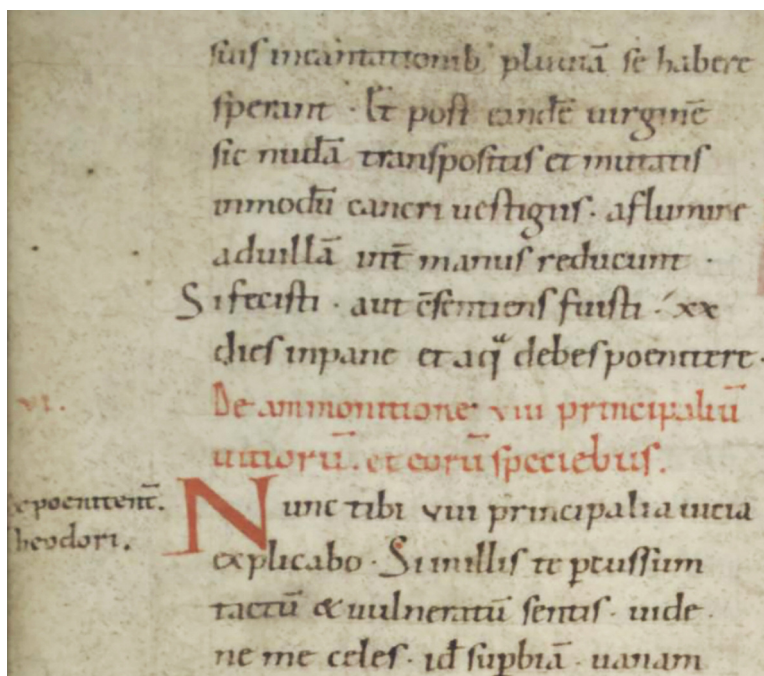 suis incantationib; pluuiā se habere
sperant · Et post eandē uirginē
sic nudā transpositis et mutatis
inmodū cancri uestigiis · aflumine
aduillā int̄ manus reducunt ·
Si fecisti · aut c̄sentiens fuisti · xx
dies inpane et aq debes poenitere ·
VI.
De ammonitione viii principaliū
uitiorū. et eorū speciebus.
poenitent̄.
heodori.
Nunc tibi viii principalia uicia
explicabo · Si in illis te p̱cussum
tactū & uulneratū sentis · uide
ne me celes · id̄ suꝑbiā · uanam